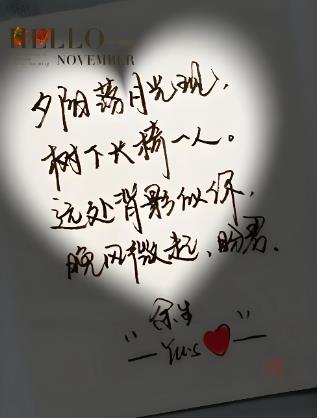 HELLO
NOVEMBER
夕阳落月光现，
树下长椅一人。
远处背影似你，
晚风微起，盼君.
余生